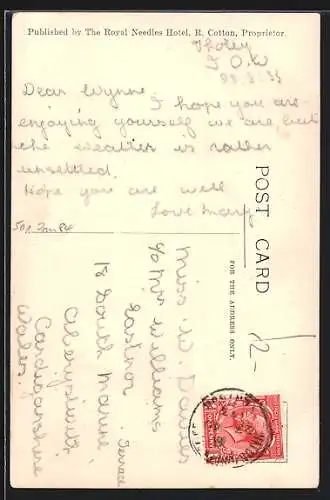 Published by The Royal Needles Hotel, R. Cotton, Proprietor.
I O W
Dear Wynne,
I hope you are
enjoying yourself we are, but
the weather is rather
unsettled.
Hope you are well
Love Mary
POST CARD
FOR THE ADDRESS ONLY.
Miss W. Davies
c/o Mrs Williams
Eastnor
18 South Marine
Terrace
Aberystwith
Cardiganshire
Wales